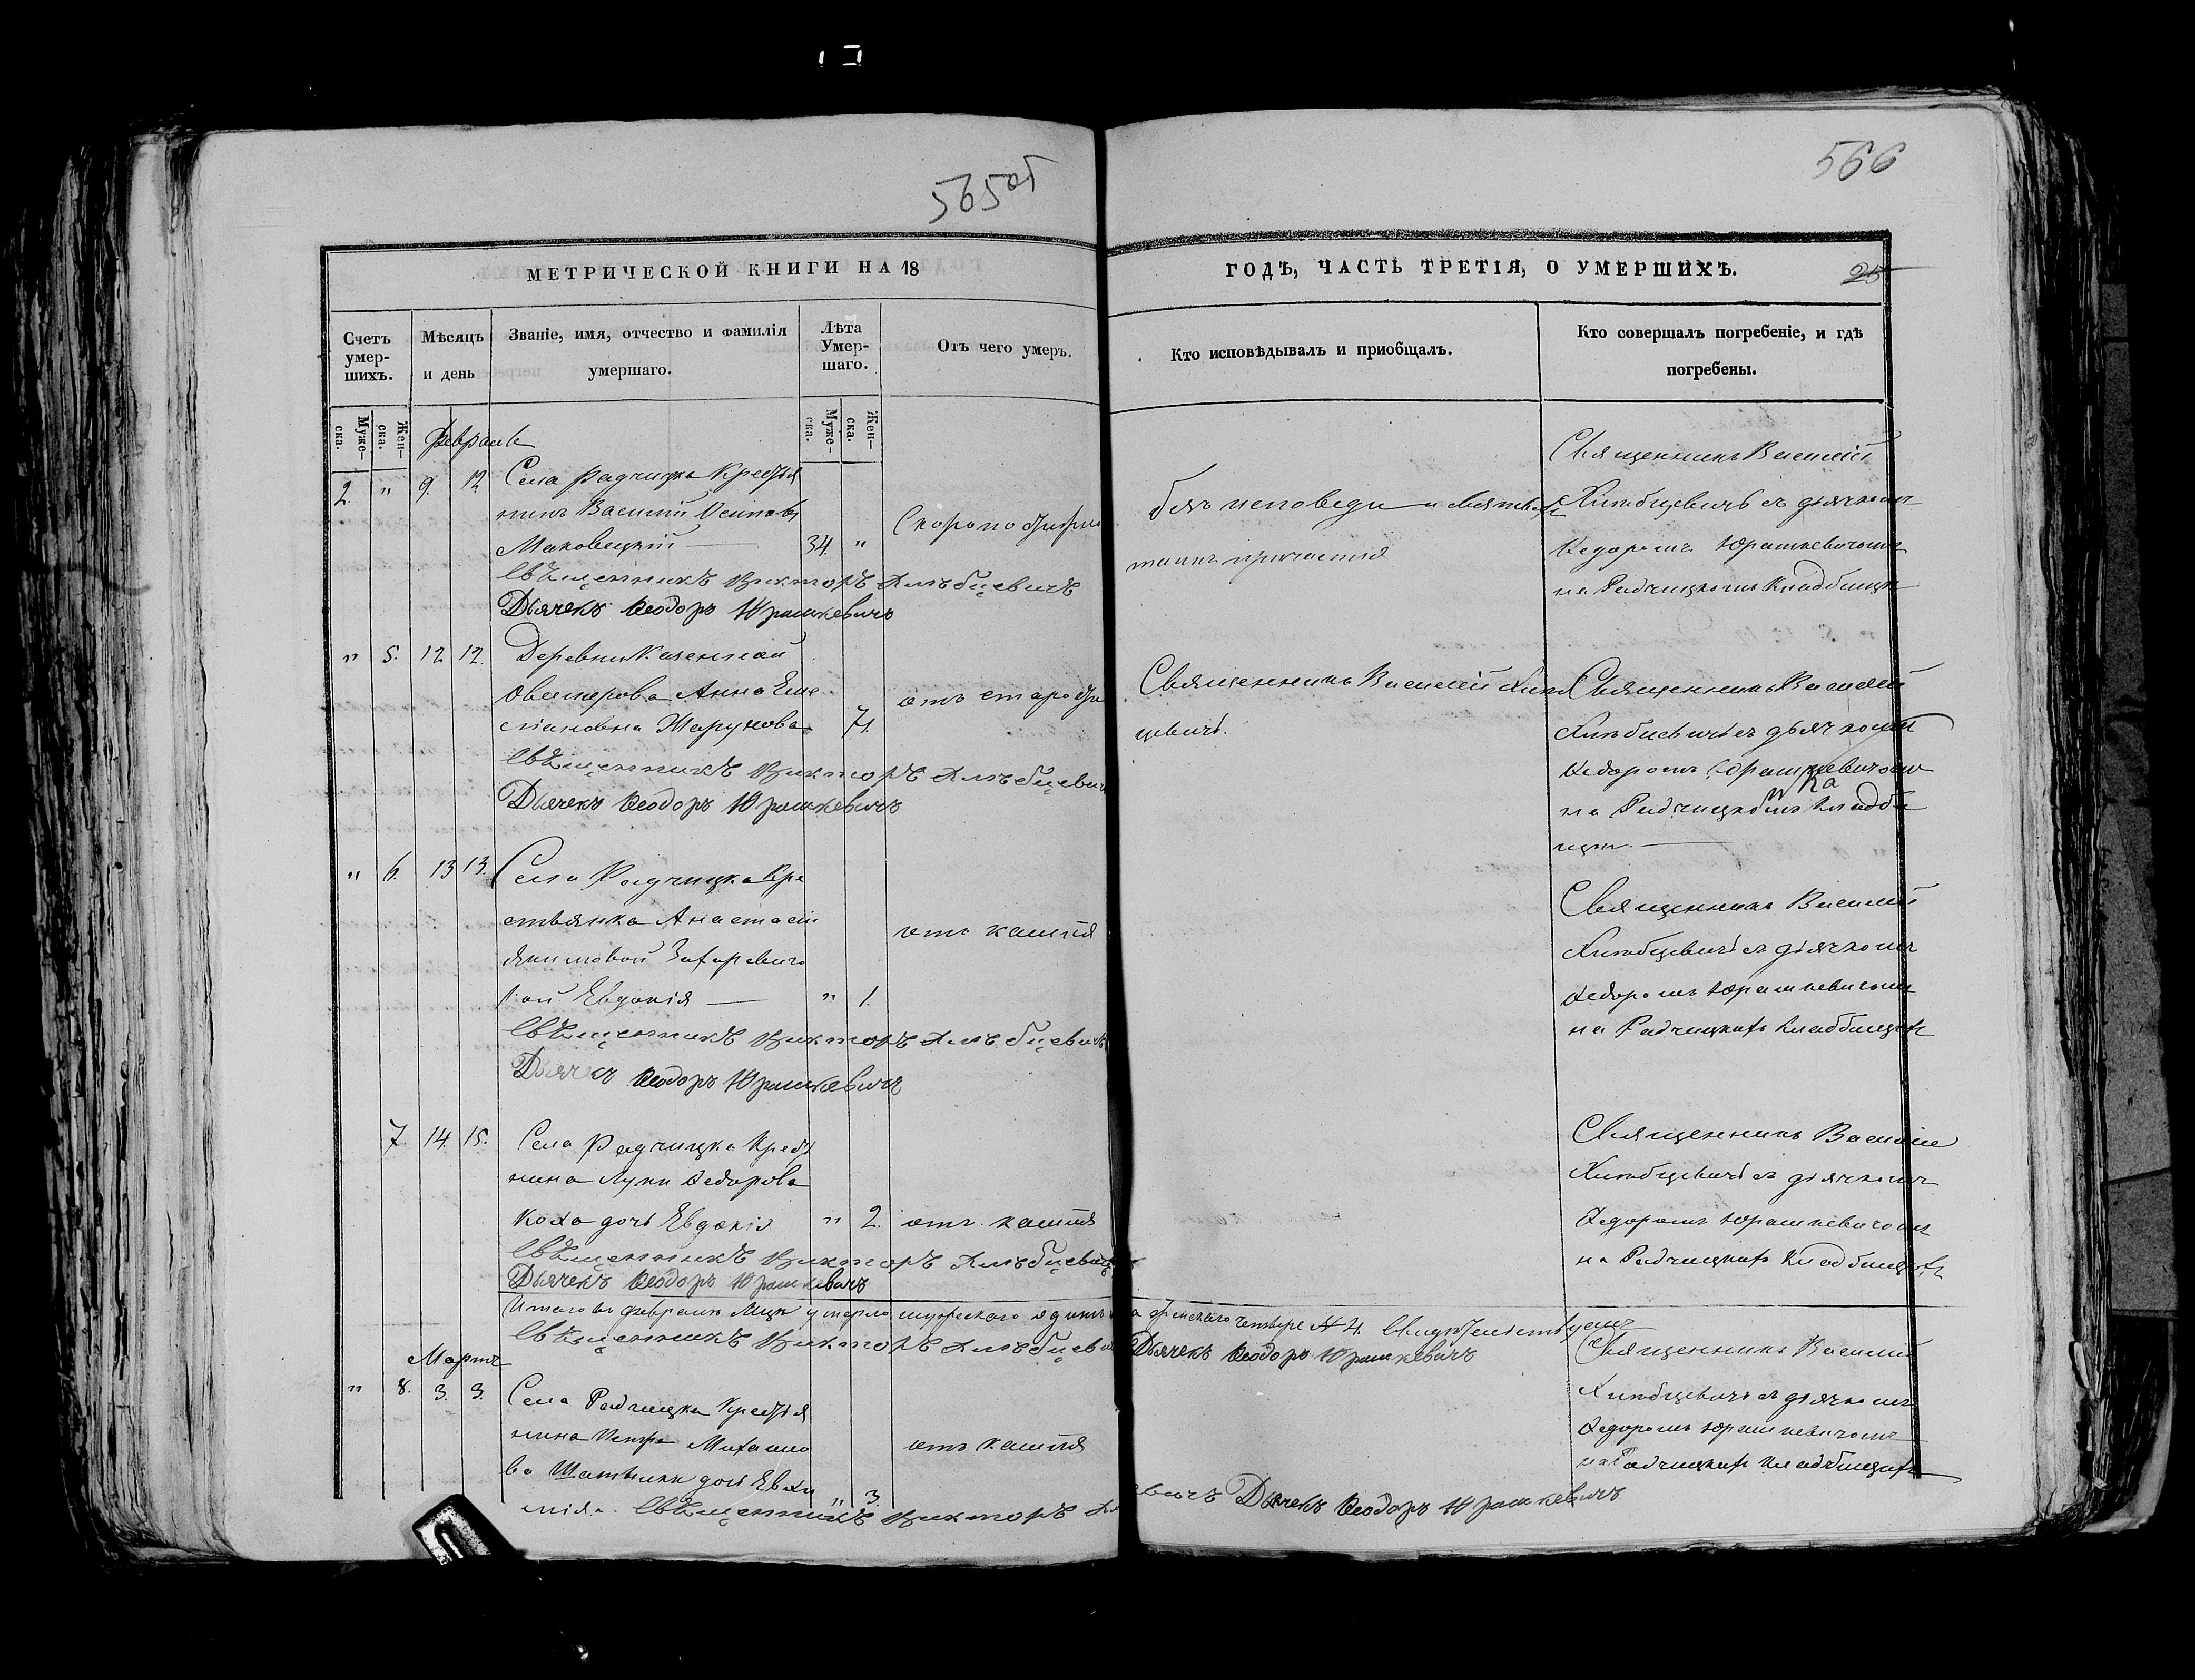 565об
566
МЕТРИЧЕСКОЙ КНИГИ НА 18
ГОДЪ, ЧАСТЬ ТРЕТІЯ, О УМЕРШИХЪ.
25
Счетъ умер-шихъ.
Мѣсяцъ и день
Званіе, имя, отчество и фамилія умершаго.
Лѣта Умер-шаго.
Отъ чего умеръ.
Кто исповѣдывалъ и приобщалъ.
Кто совершалъ погребеніе, и гдѣ погребены.
Муже-ска.
Жен-ска.
Муже-ска.
Жен-ска.
Февраль
2. " 9. 12
Села Радчицка Крестья
нинъ Василій Осиповъ
Маковецкій — 34. "
Скоропостижно
безъ исповеди и святыхъ
таинъ причастія
Священникъ Василій
Хлѣбцевичъ съ дьячкомъ
Федоромъ Юрашкевичомъ
на Радчицкомъ Кладбищѣ
Священникъ Викторъ Хлѣбцевичъ
Дьячекъ Ѳеодоръ Юрашкевичъ
" 5. 12 12.
Деревни
Анна Еме
71.
отъ старости
Священникъ Василій Хлѣб
цевичъ.
Священникъ Василій
Хлѣбцевичъ съ дьячкомъ
Федоромъ Юрашкевичомъ
на Радчицкомъ Кладби
щѣ. —
Священникъ Викторъ Хлѣбцевичъ
Дьячекъ Ѳеодоръ Юрашкевичъ
" 6. 13 13.
Села Радчицка Кре
стьянка Анастасіи
Якимовой Захаревичо
вой Евдокія — " 1.
отъ кашля
Священникъ Василій
Хлѣбцевичъ съ дьячкомъ
Федоромъ Юрашкевичомъ
на Радчицкихъ Кладбищахъ
Священникъ Викторъ Хлѣбцевичъ
Дьячекъ Ѳеодоръ Юрашкевичъ
7. 14. 15.
Села Радчицка Крестья
нина Луки Федорова
Коха дочь Евдокія " 2.
отъ кашля
Священникъ Василій
Хлѣбцевичъ съ дьячкомъ
Федоромъ Юрашкевичомъ
на Радчицкихъ Кладбищахъ
Священникъ Викторъ Хлѣбцевичъ
Дьячекъ Ѳеодоръ Юрашкевичъ
Итого въ февралѣ умерло мужескаго одинъ а женскаго четыре № 4. Свидѣтельствуемъ
Священникъ Викторъ Хлѣбцевичъ Дьячекъ Ѳеодоръ Юрашкевичъ
Мартъ
" 8. 3. 3.
Села Радчицка Крестья
нина Петра Михайло
ва дочь Евхи
мія. " 3.
отъ кашля
Священникъ Василій
Хлѣбцевичъ съ дьячкомъ
Федоромъ Юрашкевичомъ
на Радчицкихъ Кладбищахъ
Священникъ Викторъ Хлѣбцевичъ Дьячекъ Ѳеодоръ Юрашкевичъ